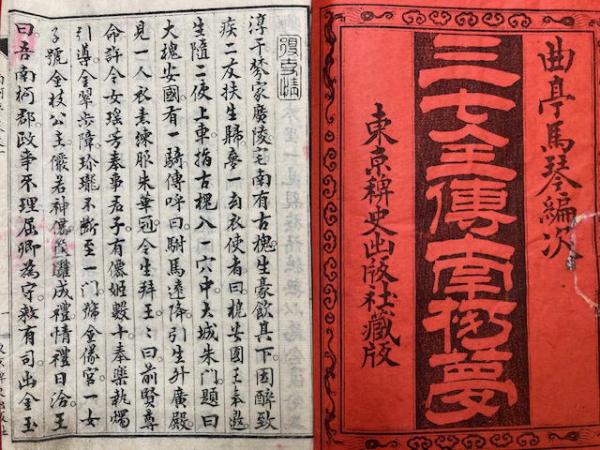 曲亭馬琴編次
三七全傳南柯夢
東京稗史出版社藏版
淳于棼家廣陵宅南有古槐生豪飲其下因醉致
疾二友扶生歸夢一玄衣使者曰槐安國王奉邀
生隨二使上車指古槐入一穴中大城朱門題曰
大槐安國有一騎傳呼曰駙馬遠降引生升廣殿
見一人衣素練服朱華冠令生拜王王曰前賢尊
命許令女瑤芳奉事君子有僊姬數十奉樂執燭
引導金翠步障玲瓏不斷至一門號金僊宮一女
子號金枝公主儼若神僊成禮情禮日洽王
曰吾南柯郡政事不理屈卿為守敕有司出金玉